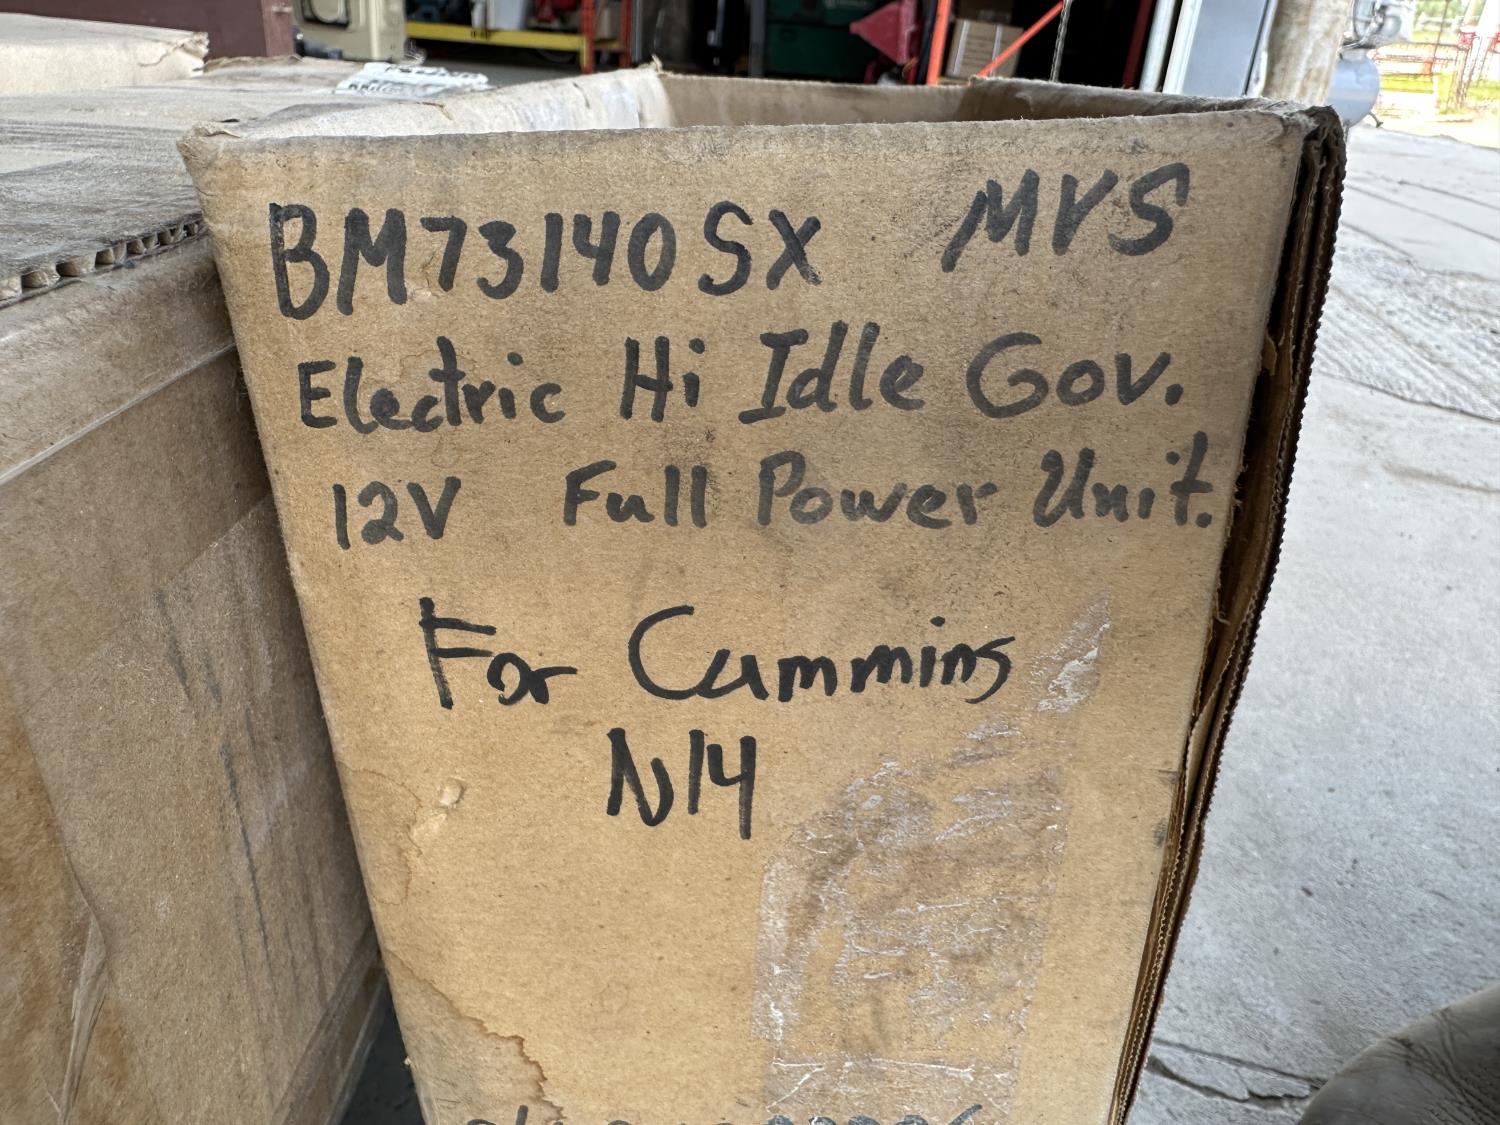 BM73140SX MVS
Electric Hi Idle Gov.
12V Full Power Unit.
For Cummins
N14